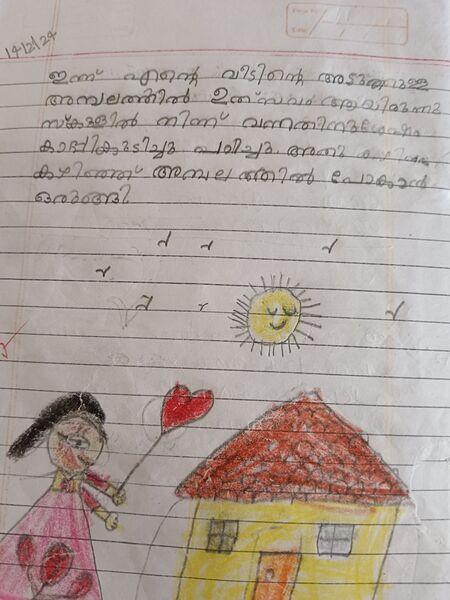 14/2/24
ഇന്ന് എന്റെ വീടിന്റെ അടുത്തുള്ള
അമ്പലത്തിൽ ഉത്സവം ആയിരുന്നു
സ്കൂളിൽ നിന്ന് വന്നതിനുശേഷം
കാപ്പികുടിച്ചു പഠിച്ചു അതു കഴിഞ്ഞു
കഴിഞ്ഞ് അമ്പലത്തിൽ പോകാൻ
ഒരുങ്ങി